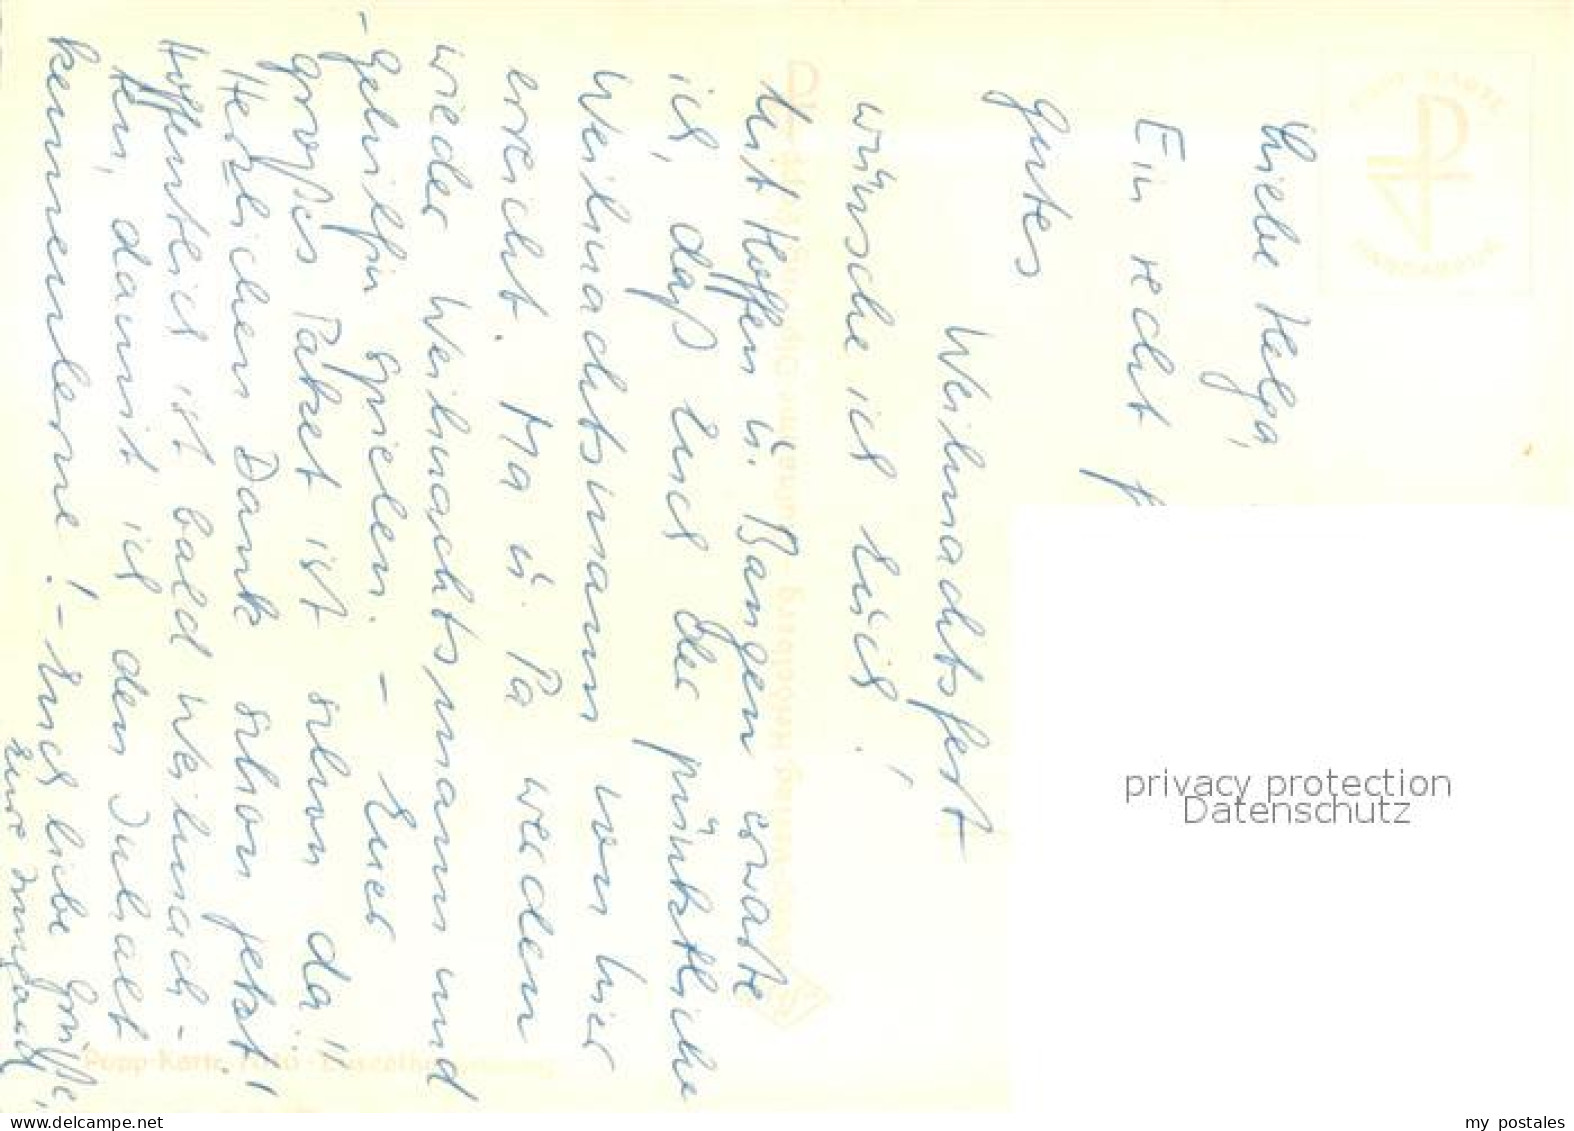 Liebe Helga,
Ein recht
gutes
Weihnachtsfest
wünsche ich Euch!
Mit Hoffen u. Bangen erwarte
ich, daß Euch der pünktliche
Weihnachtsmann von hier
erreicht. Ma u. Pa werden
wieder Weihnachtsmann und
-gehilfin spielen. - Euer
großes Paket ist schon da"
Herzlichen Dank schon jetzt!
Hoffentlich ist bald Weihnach-
ten, damit ich den Inhalt
kennenlerne! - Euch liebe Grüße,
Eure Irmgard
Popp-Karte
Heidelberg
privacy protection
Datenschutz
www.delcampe.net
my postales